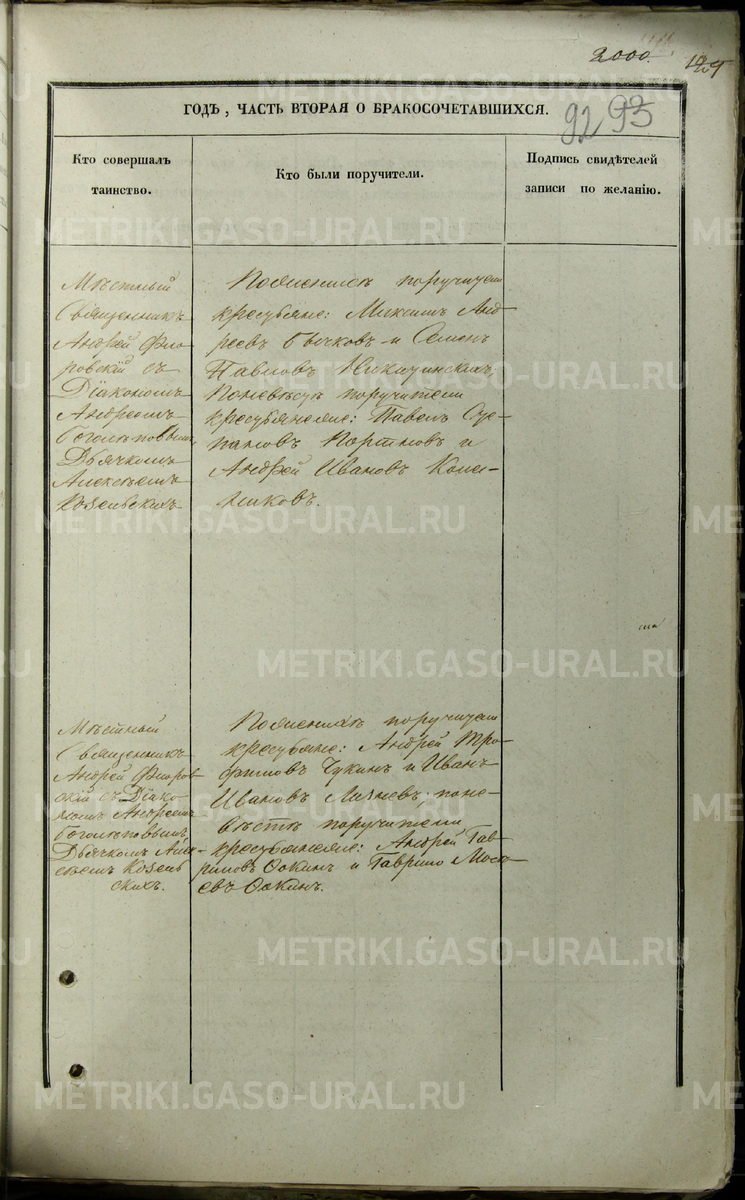 2000.
ГОДЪ, ЧАСТЬ ВТОРАЯ О БРАКОСОЧЕТАВШИХСЯ.
92 93
Кто совершалъ
таинство.
Кто были поручители.
Подпись свидѣтелей
записи по желанію.
Мѣстный
Священникъ
Андрей Фло-
ровскій съ
Діакономъ
Андреемъ
Боголѣповымъ
Дьячкомъ
Алексѣемъ
Козельскихъ
По женихѣ поручители
крестьяне: Максимъ Анд-
реевъ Бычковъ и Семенъ
Павловъ
По невѣстѣ поручители
крестьянеже: Павелъ Сте-
пановъ и
Андрей Ивановъ
Мѣстный
Священникъ
Андрей Флоров-
скій съ Діако-
номъ Андреемъ
Боголѣповымъ,
Дьячкомъ Алек-
сѣемъ Козель
скихъ.
По женихѣ поручители
крестьяне: Андрей Тро-
фимовъ Чукинъ и Иванъ
Ивановъ по не-
вѣстѣ поручители
крестьянеже: Андрей Гав-
риловъ Оскинъ и Гаврило Мосе-
евъ Оскинъ.
METRIKI.GASO-URAL.RU